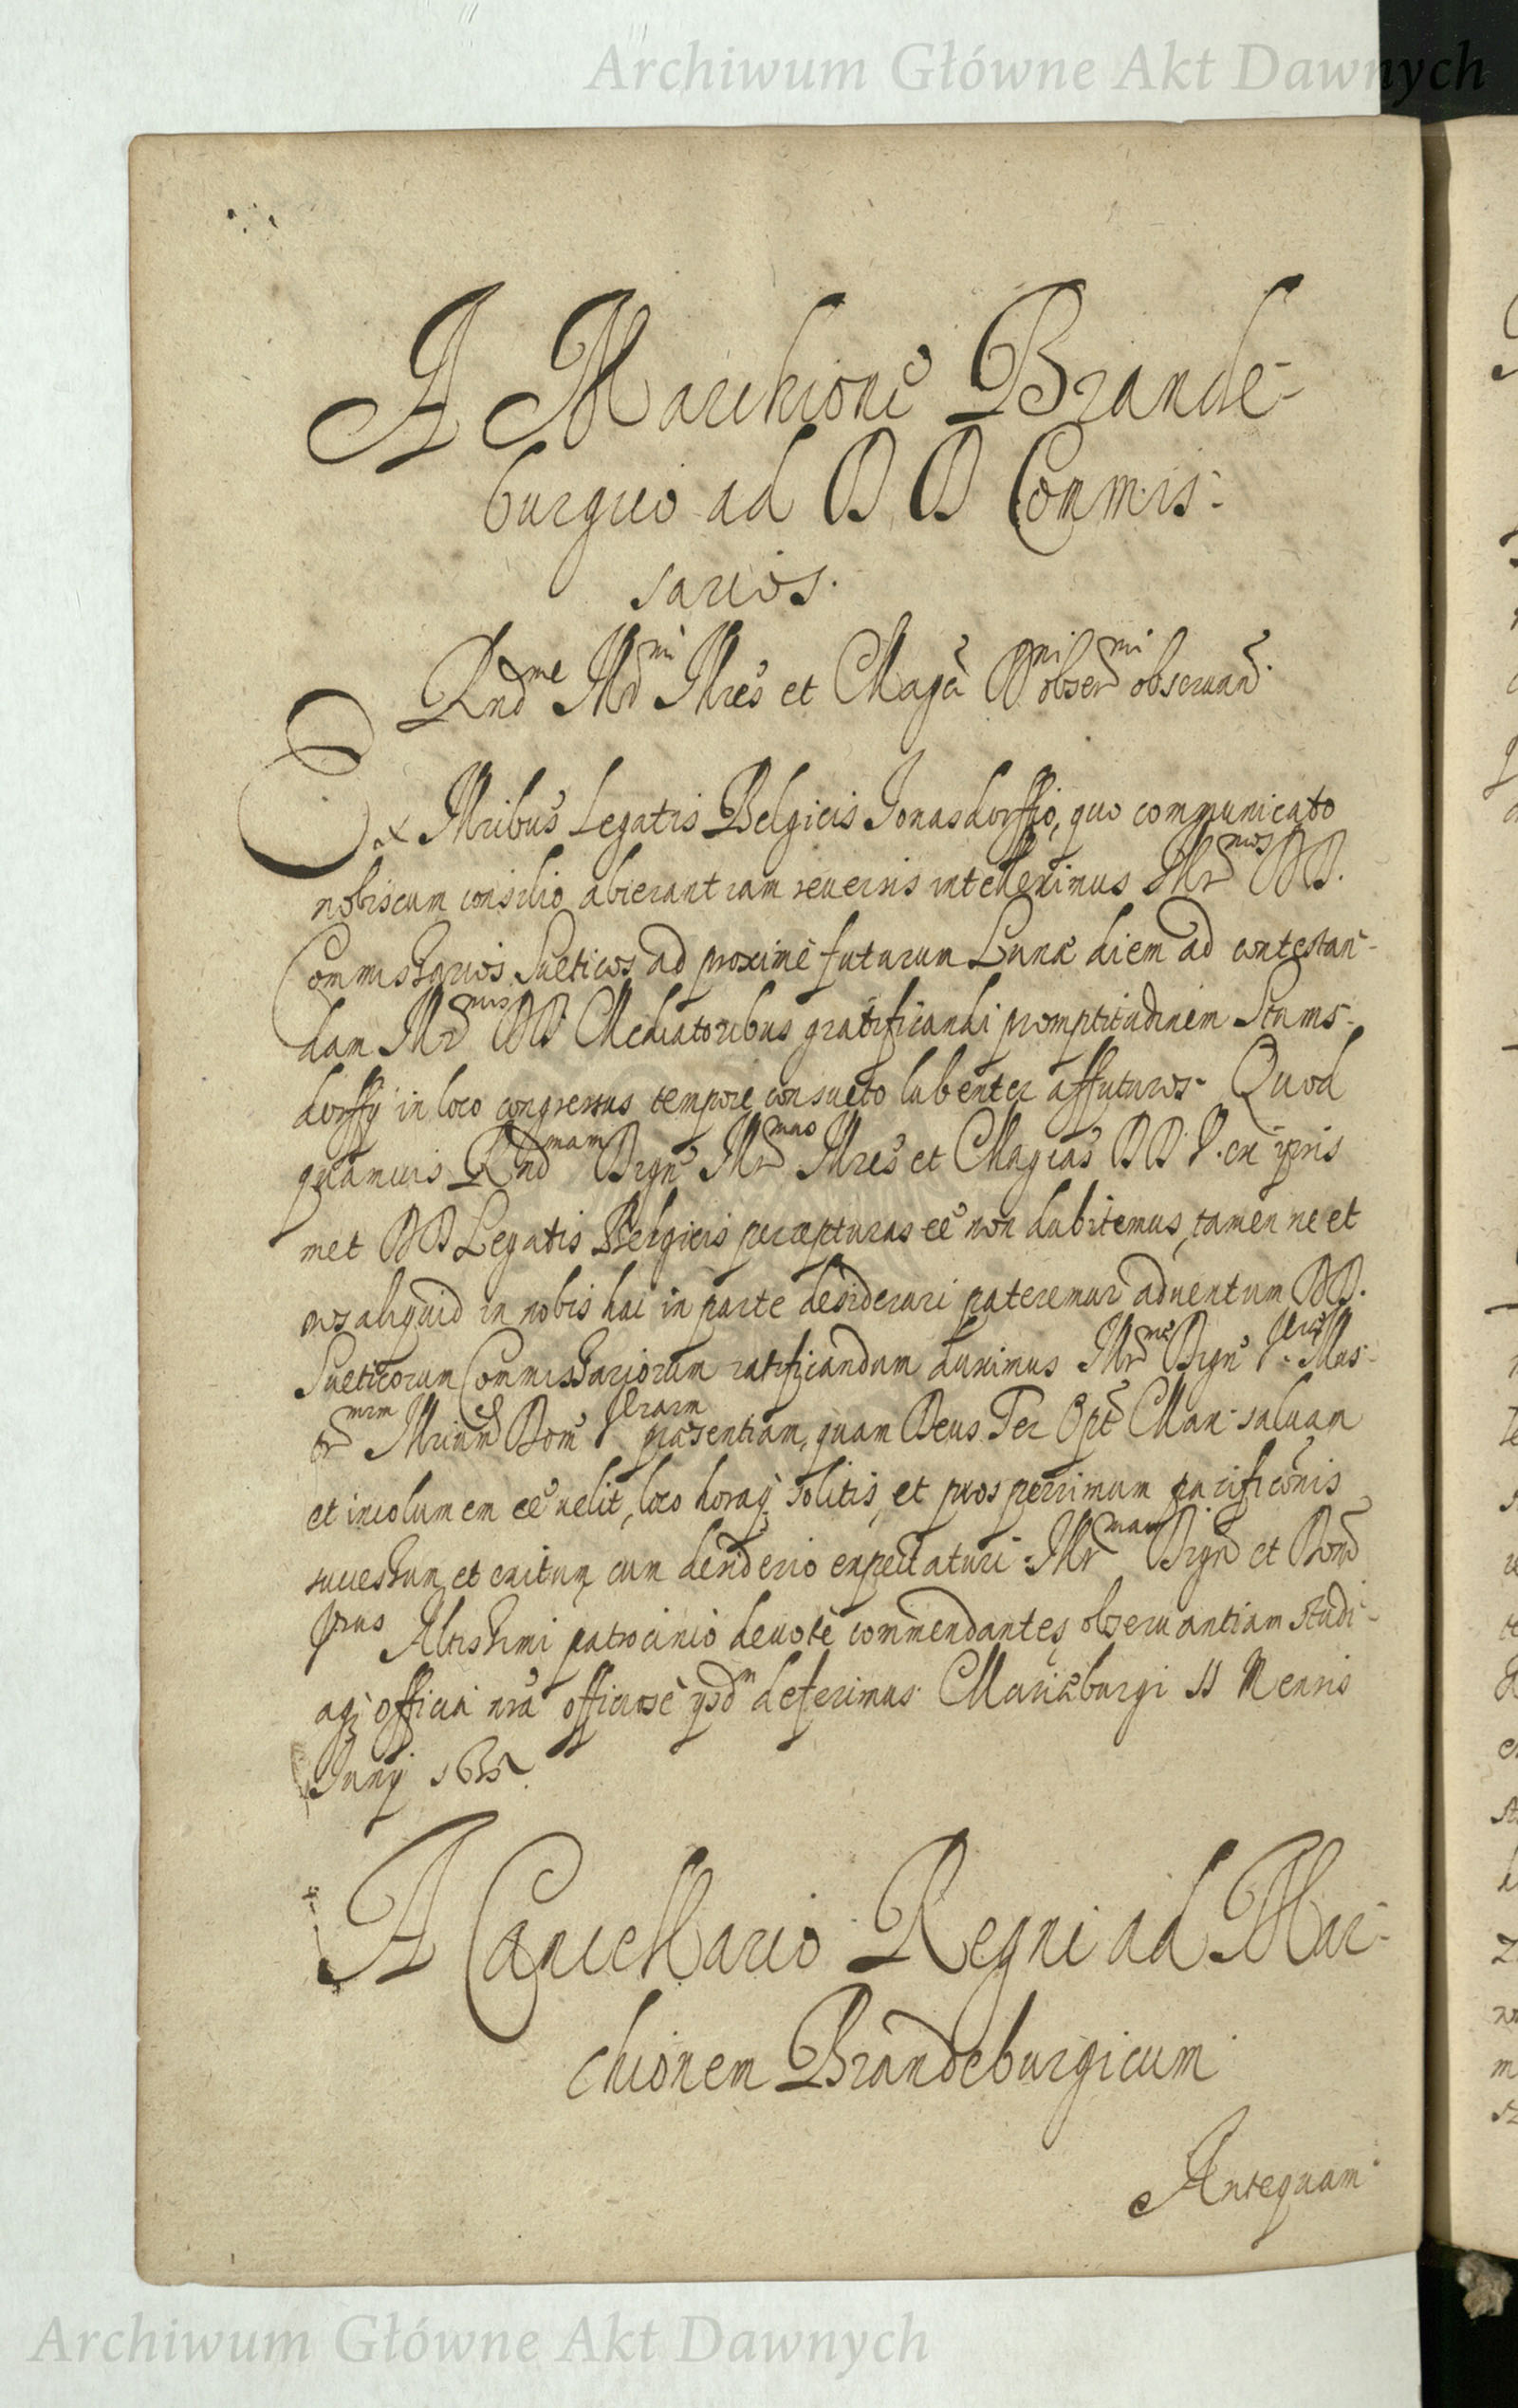 Archiwum Główne Akt Dawnych
A Marchione Brande-
burgico ad DD Commis-
sarios.
Rnd^me Illr^mi Illres et Magci D^ni obser^mi observand.
Ex Illribus Legatis Belgicis Jonasdorffio, quo communicato
nobiscum consilio abierant iam reversis intelleximus Illr^mos DD.
Commissarios Sueticos ad proximè futurum Lunae diem ad contestan-
dam Illr^mis DD Mediatoribus gratificandi promptitudinem Stums-
dorffij in loco congressus tempore consueto lubenter affuturos. Quod
quamvis Rnd^mam Dign Illr^mas Illres et Magcas DD V. ex ipsis
met DD Legatis Belgicis percepturas eē non dubitemus, tamen ne et
nos aliquid in nobis hac in parte desiderari pateremur adventum DD.
Sueticorum Commissariorum ratificandum duximus Illr^mae Dign V^rae Illus-
tr^mm Illrium Dom V^raram praesentiam, quam Deus Ter Opt Max saluam
et incolumem eē velit, loco horaq; solitis, et prosperrimum pacificōnis
successum et exitum cum desiderio expectaturi. Illr^mam Dign et Dom
V^ras Altissimi patrocinio devotè commendantes observantiam studi-
aq; officia nrā officiosè ysd^m deferimus. Mariaeburgi 11 Mensis
Junij 1635
A Cancellario Regni ad Mar-
chionem Brandeburgicum
Antequam
Archiwum Główne Akt Dawnych